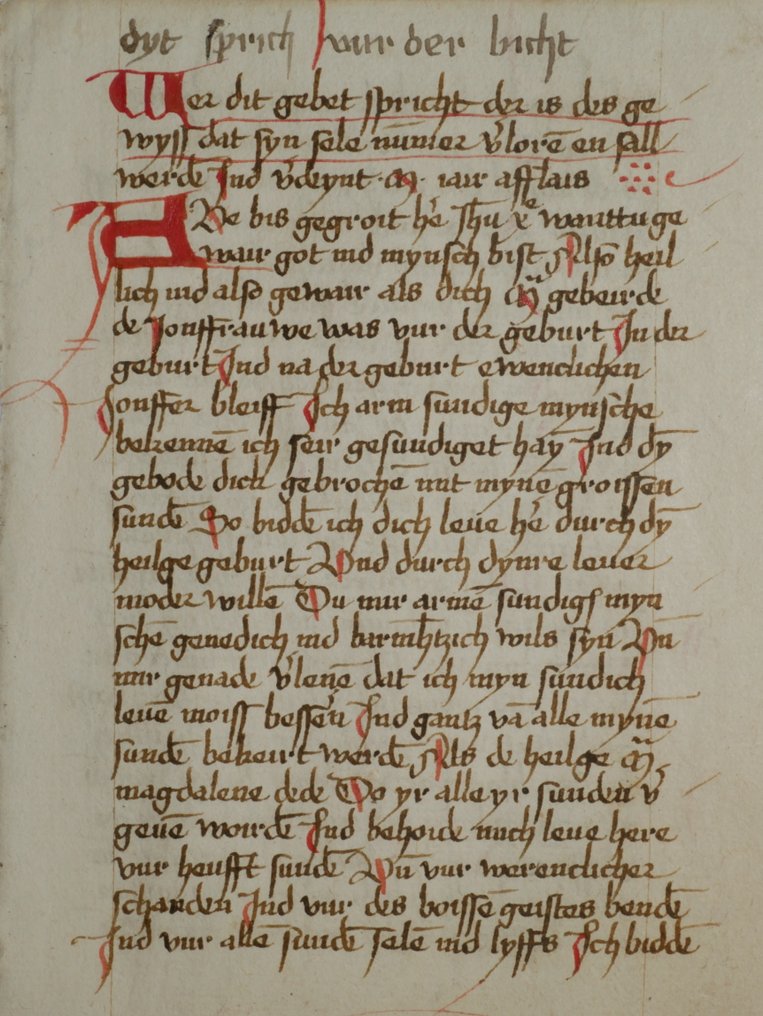 dyt sprich vur der bicht
Wer dit gebet spricht der is des ge
wyss dat syn sele nūmer v̓lorē en sall
werdē Ind v̓deynt · M · iair afflais
AVe bis gegroit hē Ihū xp̄e wanttu ge
wair got ind mynsch bist Also heil
lich ind also gewair als dich Mͣ gebeirde
de Jonffrauwe was vur der geburt In der
geburt Ind na der geburt ewenclichen
Jonffer bleiff Ich arm sundige mynsche
bekennē ich seir gesundiget hay̅ Ind dy̅
gebode dick gebrochē mit mynē groissen
sundē So biddē ich dich leue hē durch dy̅
heilge geburt Vnd durch dynre leuer
moder willē Du mir armē sundigē myn
schē genedich ind barmh̄tzich wils syn Vn̄
mir genade v̓lenē dat ich myn sundich
leuē moiss bessēn Ind gantz vā alle mynē
sundē bekeirt werdē Als de heilge Mͣ
magdalene dede Do yr alle yr sunden v̓
geuē wordē Ind behoide mich leue here
vur heufft sundē Vn̄ vur werenclicher
schanden Ind vur des boissē geistes bendē
Ind vur allē sundē selē ind lyffs Ich biddē